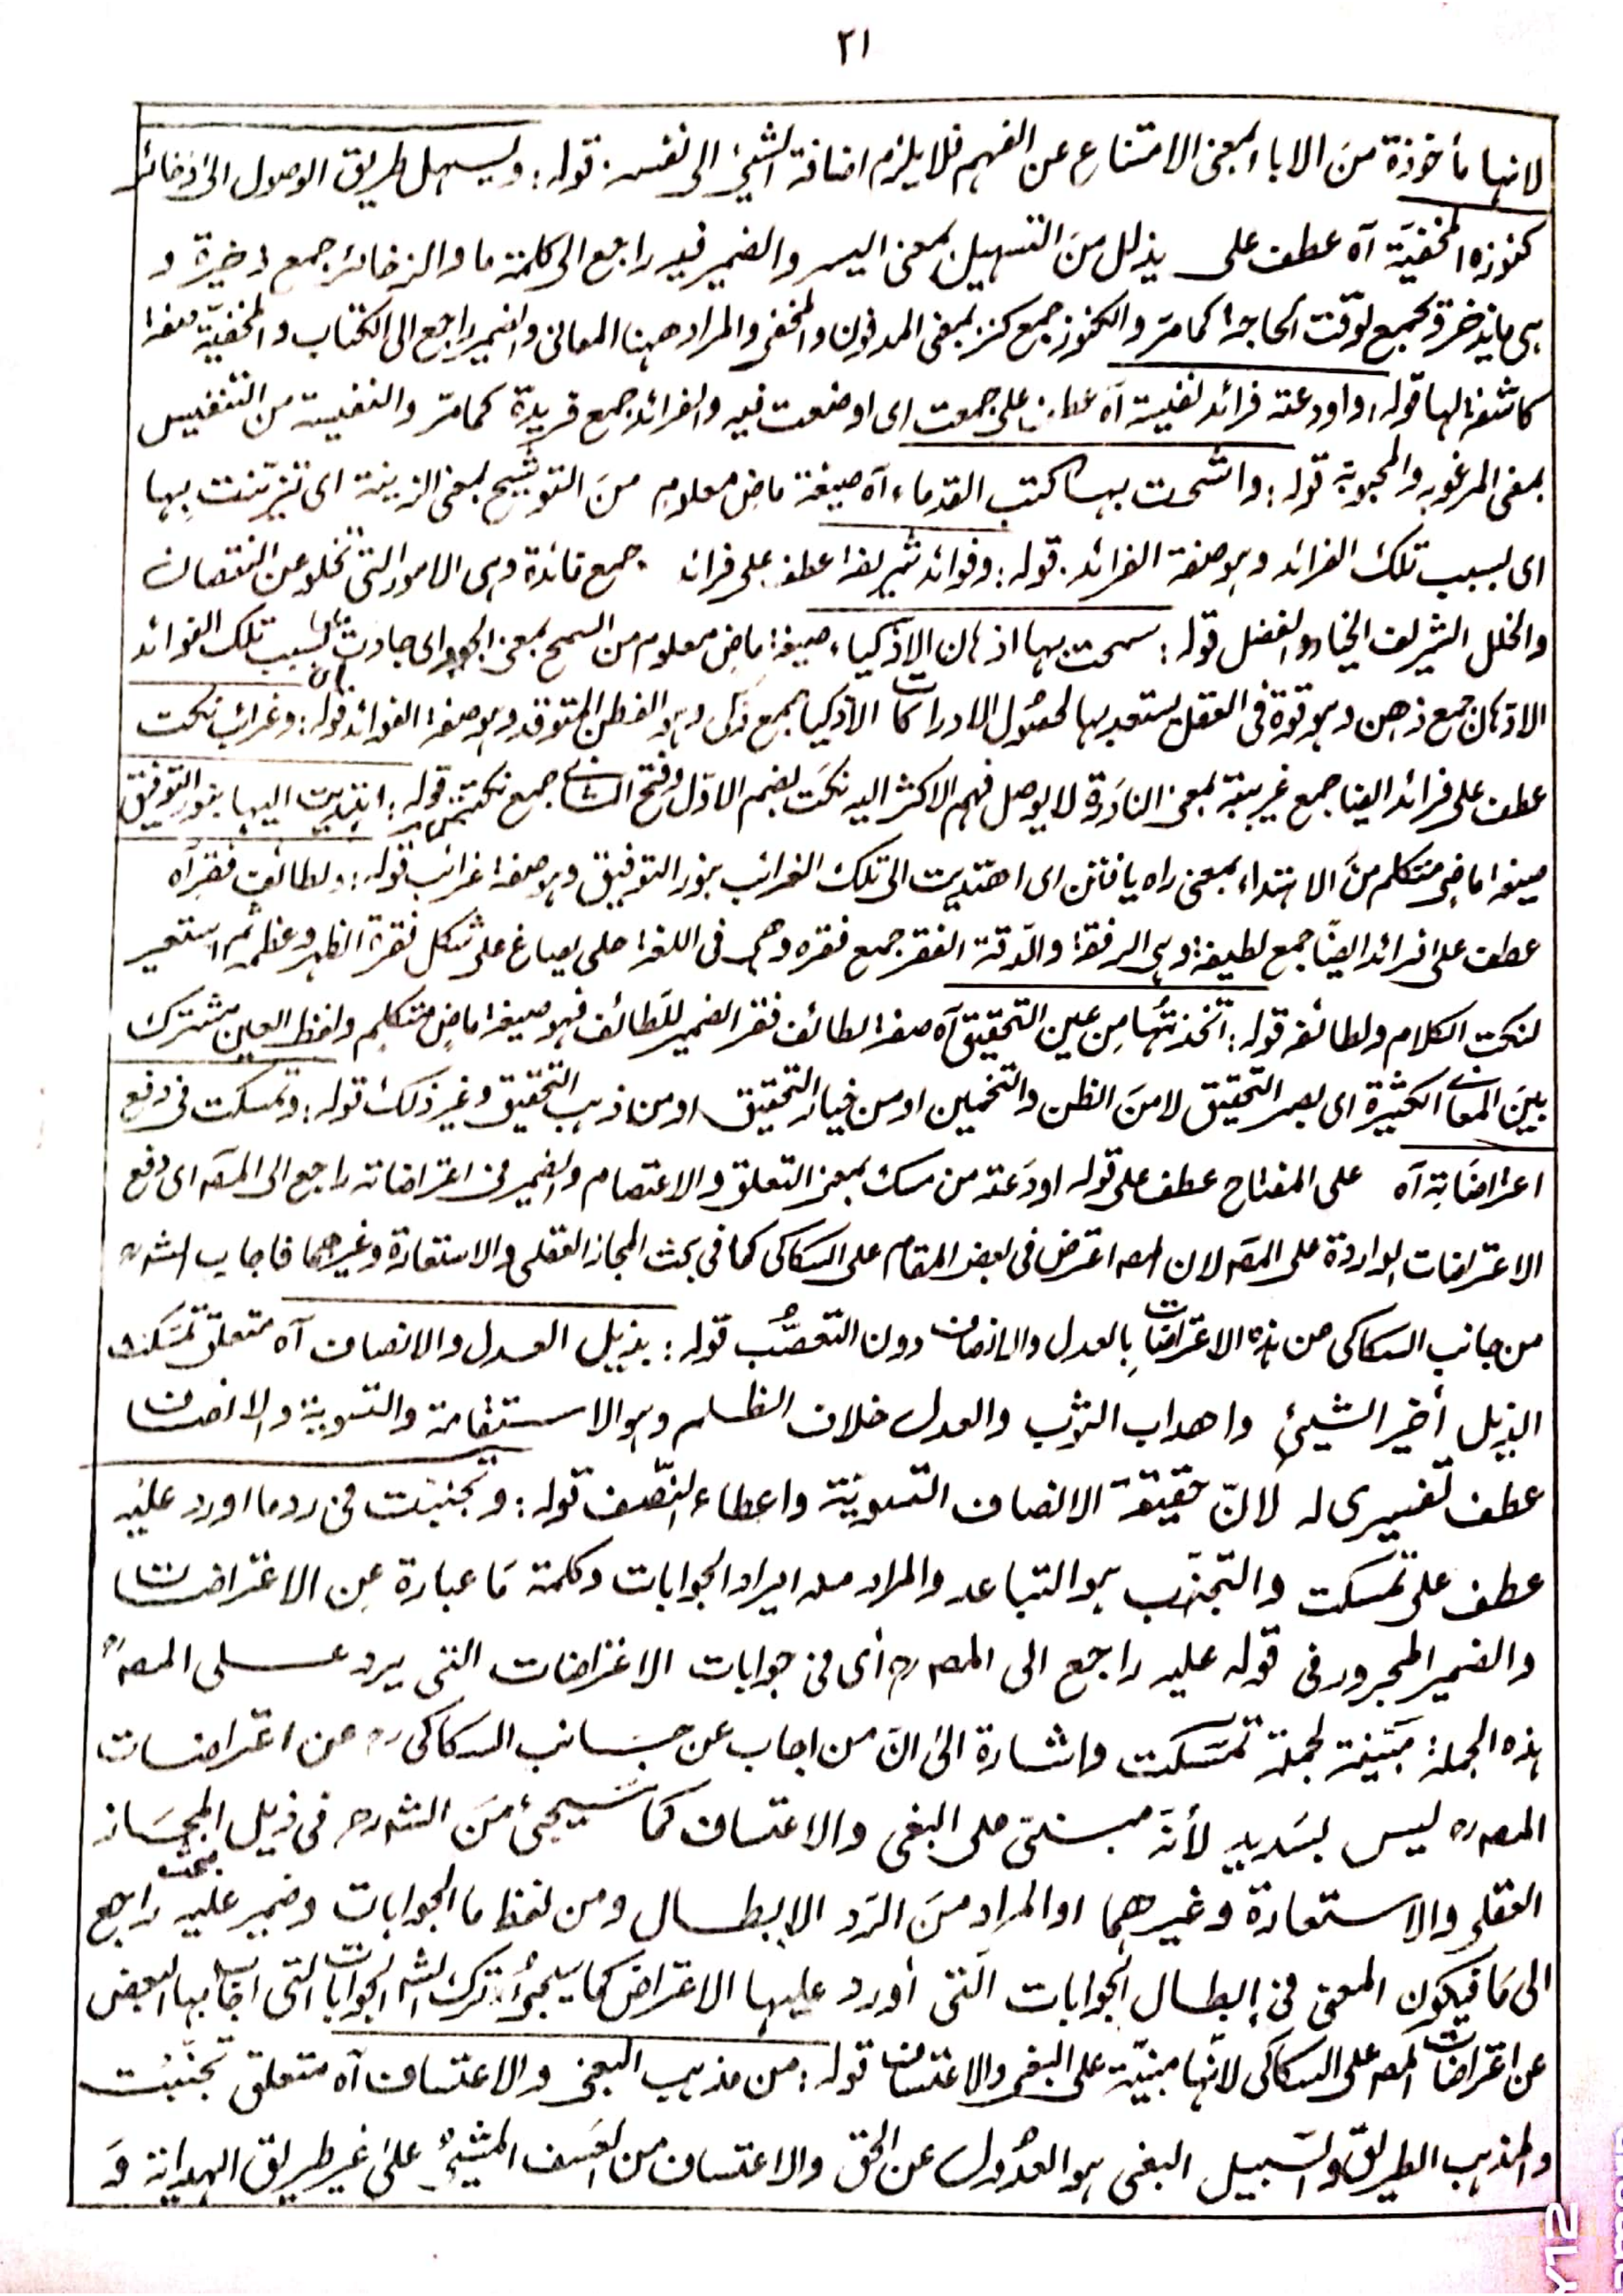 ٢١
لانہا مأخوذة منَ الاباء بمعنى الامتناع عن الفہم فلا يلزم اضافة الشيئ الى نفسہ. قولہ: ويسہل طريق الوصول الىٰ ذخائر
كنوزہ المخفيَّة آہ عطف على يذلل منَ التسہيل بمعنى اليسر والضمير فيہ راجع الى كلمة ما والذخائر جمع ذخيرة و
ہى ما يدخر ويجمع لوقت الحاجة كما مرّ والكنوز جمع كنز بمعنى المدفون والمخفى والمراد ھہنا المعانى والضمير راجع الى الكتاب والمخفيّة صفة
كاشفة لہا قولہ: واودعتہ فرائد نفيسة آہ عطف على جمعت اى اوضعت فيہ والفرائد جمع فريدة كما مرّ والنفيسة من التنفيس
بمعنى المرغوبة والمحبوبة قولہ: واتشحت بہا كتب القدماء آہ صيغة ماضٍ معلوم منَ التوشيح بمعنى الزينة اى تزيّنت بِہا
اى بسبب تلك الفرائد وہو صفة الفرائد. قولہ: وفوائد شريفة عطف على فرائد جمع فائدة وہى الامور التى تخلو عن النقصان
والخلل الشريف الخيار والفضل قولہ: سمحت بہا اذہان الاذكياء صيغة ماضٍ معلوم من السمح بمعنى الجود اى جادت بہا اى بسبب تلك الفوائد
الاذہان جمع ذھن وہو قوة فى العقل يستعد بہا لحصُول الادراكات الأذكيا جمع ذكى وہو الفطن المتوقد وہو صفة الفوائد قولہ: وغرائب نكت
عطف على فرائد ايضا جمع غريبة بمعنى النادرة لا يوصل فہم الاكثر اليہ نكَت بضم الاوّل وفتح الثانى جمع نكتة قولہ: اہتديت اليہا بنور التوفيق
صيغة ماضٍ متكلم منَ الاہتداء بمعنى راہ يافتن اى اھتديت الى تلك الغرائب بنور التوفيق وہو صفة غرائب قولہ: ولطائف فقر آہ
عطف على فرائد ايضًا جمع لطيفة وہى الرفقة والدّقة الفقر جمع فقرہ وھى فى اللغة حلى يصاغ على شكل فقرة الظہر وعظمہ ثم استعير
لنكت الكلام ولطائفہ قولہ: اتّخذتُہا مِن عين التحقيق آہ صفة لطائف فقر الضمير للّطائف فہو صيغة ماضٍ متكلم ولفظ العين مشترك
بينَ المعانى الكثيرة اى بصر التحقيق لا منَ الظن والتخمين او من خيار التحقيق او من ذہب التحقيق وغير ذلك قولہ: وتمسكت فى دفع
اعتراضَاتہ آہ على المفتاح عطف على قولہ اودَعتہ من مسك بمعنى التعلق والاعتصام والضمير فى اعتراضاتہ راجع الى المصہ اى دفع
الاعتراضات الواردة على المصہ لان المصہ اعترض فى بعض المقام على السكاكى كما فى بحث المجاز العقلى والاستعارة وغيرھما فاجاب الشہ رہ
من جانب السكاكى من ہذہ الاعتراضَات بِالعدل والانصاف دون التعصُّب قولہ: بذيل العدل والانصاف آہ متعلق تمسّكت
الذيل أخير الشيئ واھداب الثوب والعدل خلاف الظلم وہو الاستقامة والتسوية والانصاف
عطف تفسيرى لہ لانّ حقيقة الانصاف التسويَة واعطاء النّصف قولہ: وتجنبت فى رد ما اورد عليہ
عطف على تمسكت والتّجنّب ہو التباعد والمراد منہ ايراد الجوابات وكلمة مَا عبارة عن الاعتراضات
والضمير المجرور فى قولہ عليہ راجع الى المصہ رہ أى فى جوابات الاعتراضات التى يرد على المصہ رہ
ہذہ الجملة مبَيّنة لجملة تمسّكت واشارة الىٰ انّ من اجاب عن جَانب السكاكى رہ عن اعتراضات
المصہ رہ ليس بسَديد لأنّہ مبنى على البغى والاعتساف كما سيجئ منَ الشہ رہ فى ذيل بحث المجَاز
العقلى والاستعارة وغيرھما او المراد منَ الرَد الابطال ومن لفظ ما الجوابات وضمير عليہ راجع
الىٰ مَا فيكون المعنى فى إبطال الجوابات الّتى أورد عليہا الاعتراض كما سيجئ ترك الشہ الجوابات التى اجاب بہا البعض
عن اعتراضات المصہ على السكاكى لانّہا مبنيّة على البغى والاعتساف قولہ: من مذہب البغى والاعتساف آہ متعلق تجنّبت
والمذہب الطريق والسّبيل البغى ہو العدُول عن الحق والاعتساف من العَسف المشئ علىٰ غير طريق الہداية وَ